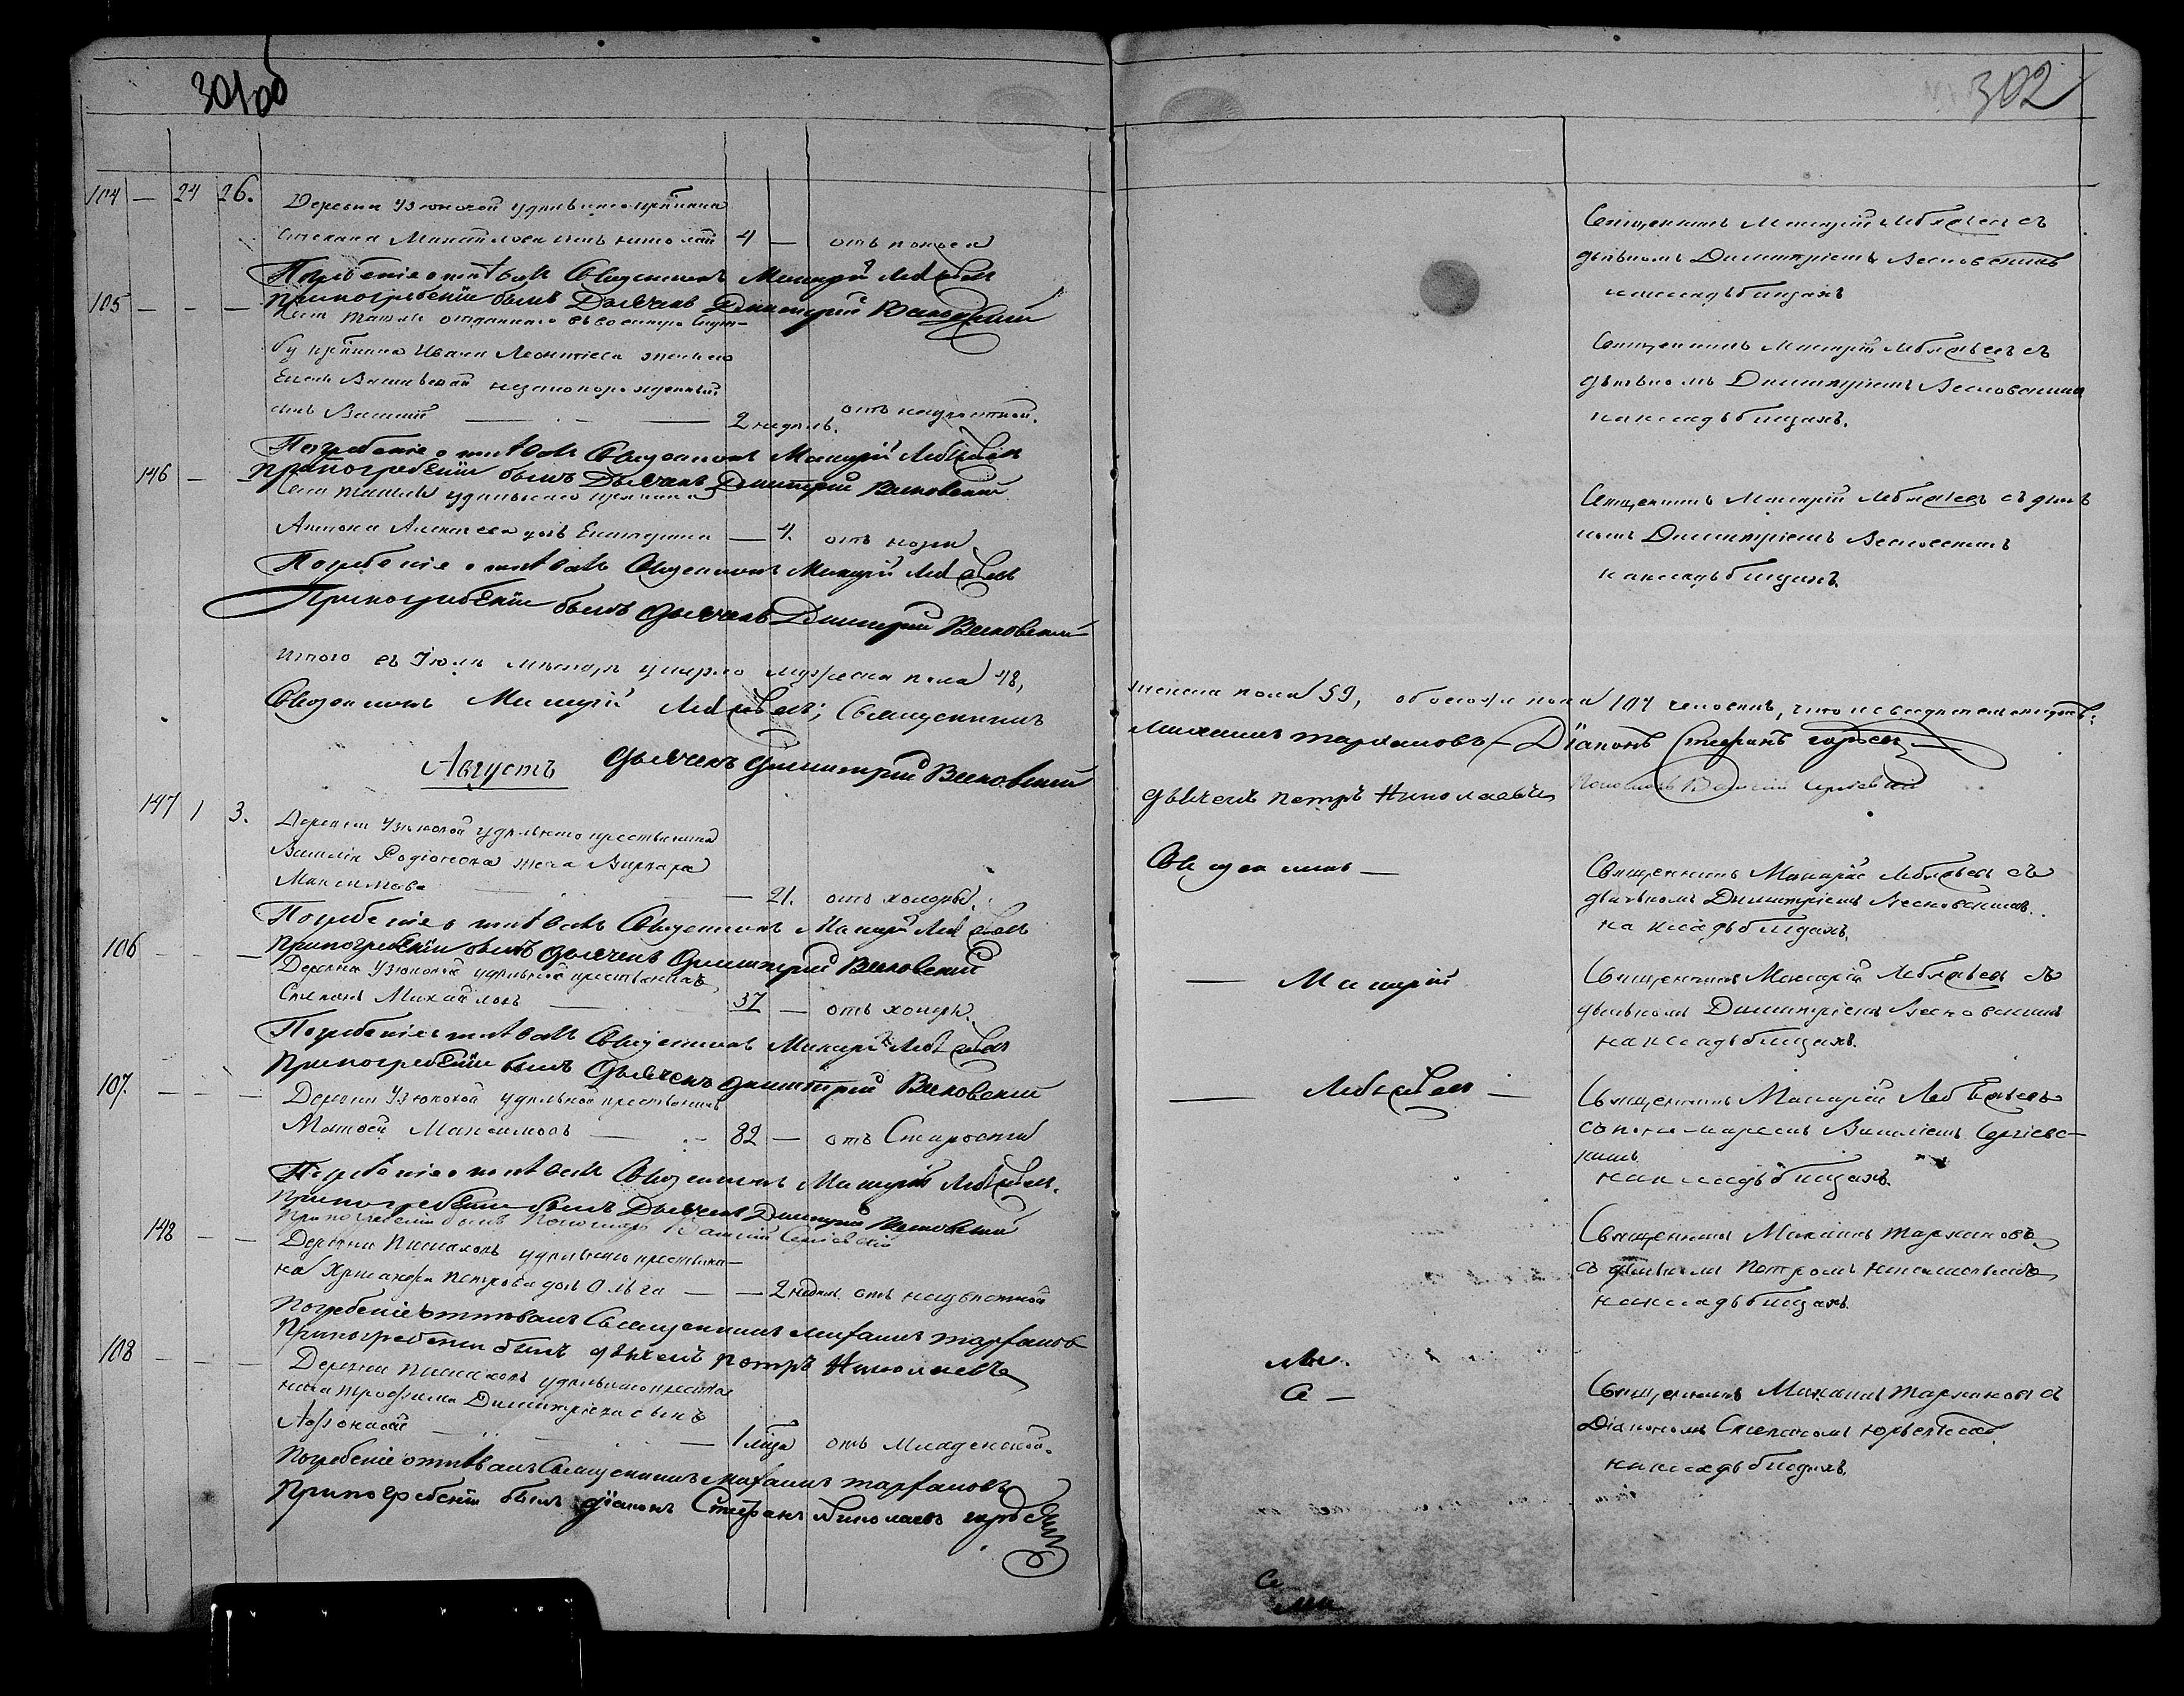 301 об
302
104 — 24 26. Деревни Узюковой удѣльнаго крестьянина
Степана Михайлова сынъ Николай 4 — отъ поноса
Погребеніе отпѣвалъ Священникъ Макарій Лебяжьев
При погребеніи былъ Дьячекъ Димитрій Весновскій
105 — — — Села Ташлы отданнаго въ военную служ-
бу крестьянина Ивана Леонтьева жены его
Елены Васильевой незаконорожденный
сынъ Василій — 2 недѣль. отъ неизвѣстной.
Погребеніе отпѣвалъ Священникъ Макарій Лебяжьев
При погребеніи былъ Дьячекъ Димитрій Весновскій
146 — — Села Ташлы удѣльнаго крестьянина
Антона Алексѣева дочь Екатерина — 4. отъ
Погребеніе отпѣвалъ Священникъ Макарій Лебяжьев
При погребеніи былъ Дьячекъ Димитрій Весновскій
Итого въ Іюлѣ мѣсяцѣ умерло мужеска пола 48,
Священникъ Макарій Лебяжьев; Священникъ
дьячекъ Димитрій Весновскій
Августъ
147 1 3. Деревни Узюковой удѣльнаго крестьянина
Василія Родіонова жена Варвара
Максимова — 21. отъ холеры.
Погребеніе отпѣвалъ Священникъ Макарій Лебяжьев
При погребеніи былъ дьячекъ Димитрій Весновскій
106 — — — Деревни Узюковой удѣльной крестьянинъ
Степанъ Михайловъ — 37 — отъ холеры.
Погребеніе отпѣвалъ Священникъ Макарій Лебяжьев
При погребеніи былъ Дьячекъ Димитрій Весновскій
107. — — — Деревни Узюковой удѣльной крестьянинъ
Матвей Максимовъ — 82 — отъ Старости
Погребеніе отпѣвалъ Священникъ Макарій Лебяжьев.
При погребеніи былъ Дьячекъ Димитрій Весновскій
При погребеніи былъ Пономарь Василій Сергіевскій
148 — — Деревни удѣльнаго крестьяни-
на Хрисанфа Петрова дочь Ольга — — 2 недѣль отъ неизвѣстной
Погребеніе отпѣвалъ Священникъ Михаилъ Тархановъ
При погребеніи былъ дьячекъ Петръ Николаевъ
108 — — — Деревни удѣльнаго крестья
нина Трофима Димитріева сынъ
Афонасій — 1 мѣсяца отъ младенской.
Погребеніе отпѣвалъ Священникъ Михаилъ Тархановъ
При погребеніи былъ діаконъ Стефанъ Николаевъ
Священникъ Макарій Лебяжьев съ
дьячкомъ Димитріемъ Весновскимъ
на кладьбищахъ
Священникъ Макарій Лебяжьевъ съ
дьячкомъ Димитріемъ Весновскимъ
на кладьбищахъ.
Священникъ Макарій Лебяжьевъ съ дьяч
комъ Димитріемъ Весновскимъ
на кладьбищахъ.
женска пола 59, обоего пола 107 человекъ, что и свидетельствуемъ:
Михаилъ Тархановъ — Діаконъ Стефанъ
дьячекъ Петръ Николаевъ Пономарь Василій Сергіевскій
Священникъ — Священникъ Макарій Лебяжьев съ
дьячкомъ Димитріемъ Весновскимъ.
на кладьбищахъ.
— Макарій Священникъ Макарій Лебяжьев съ
дьячкомъ Димитріемъ Весновскимъ
на кладьбищахъ.
— Лебяжьев — Священникъ Макарій Лебяжьевъ
съ пономаремъ Василіемъ Сергіевс-
кимъ
на кладьбищахъ.
Священникъ Михаилъ Тархановъ
съ дьячкомъ Петромъ Николаевымъ
на кладьбищахъ.
Ми.
С — Священникъ Михаилъ Тархановъ съ
Діакономъ Степаномъ
на кладьбищахъ.
С
Ми